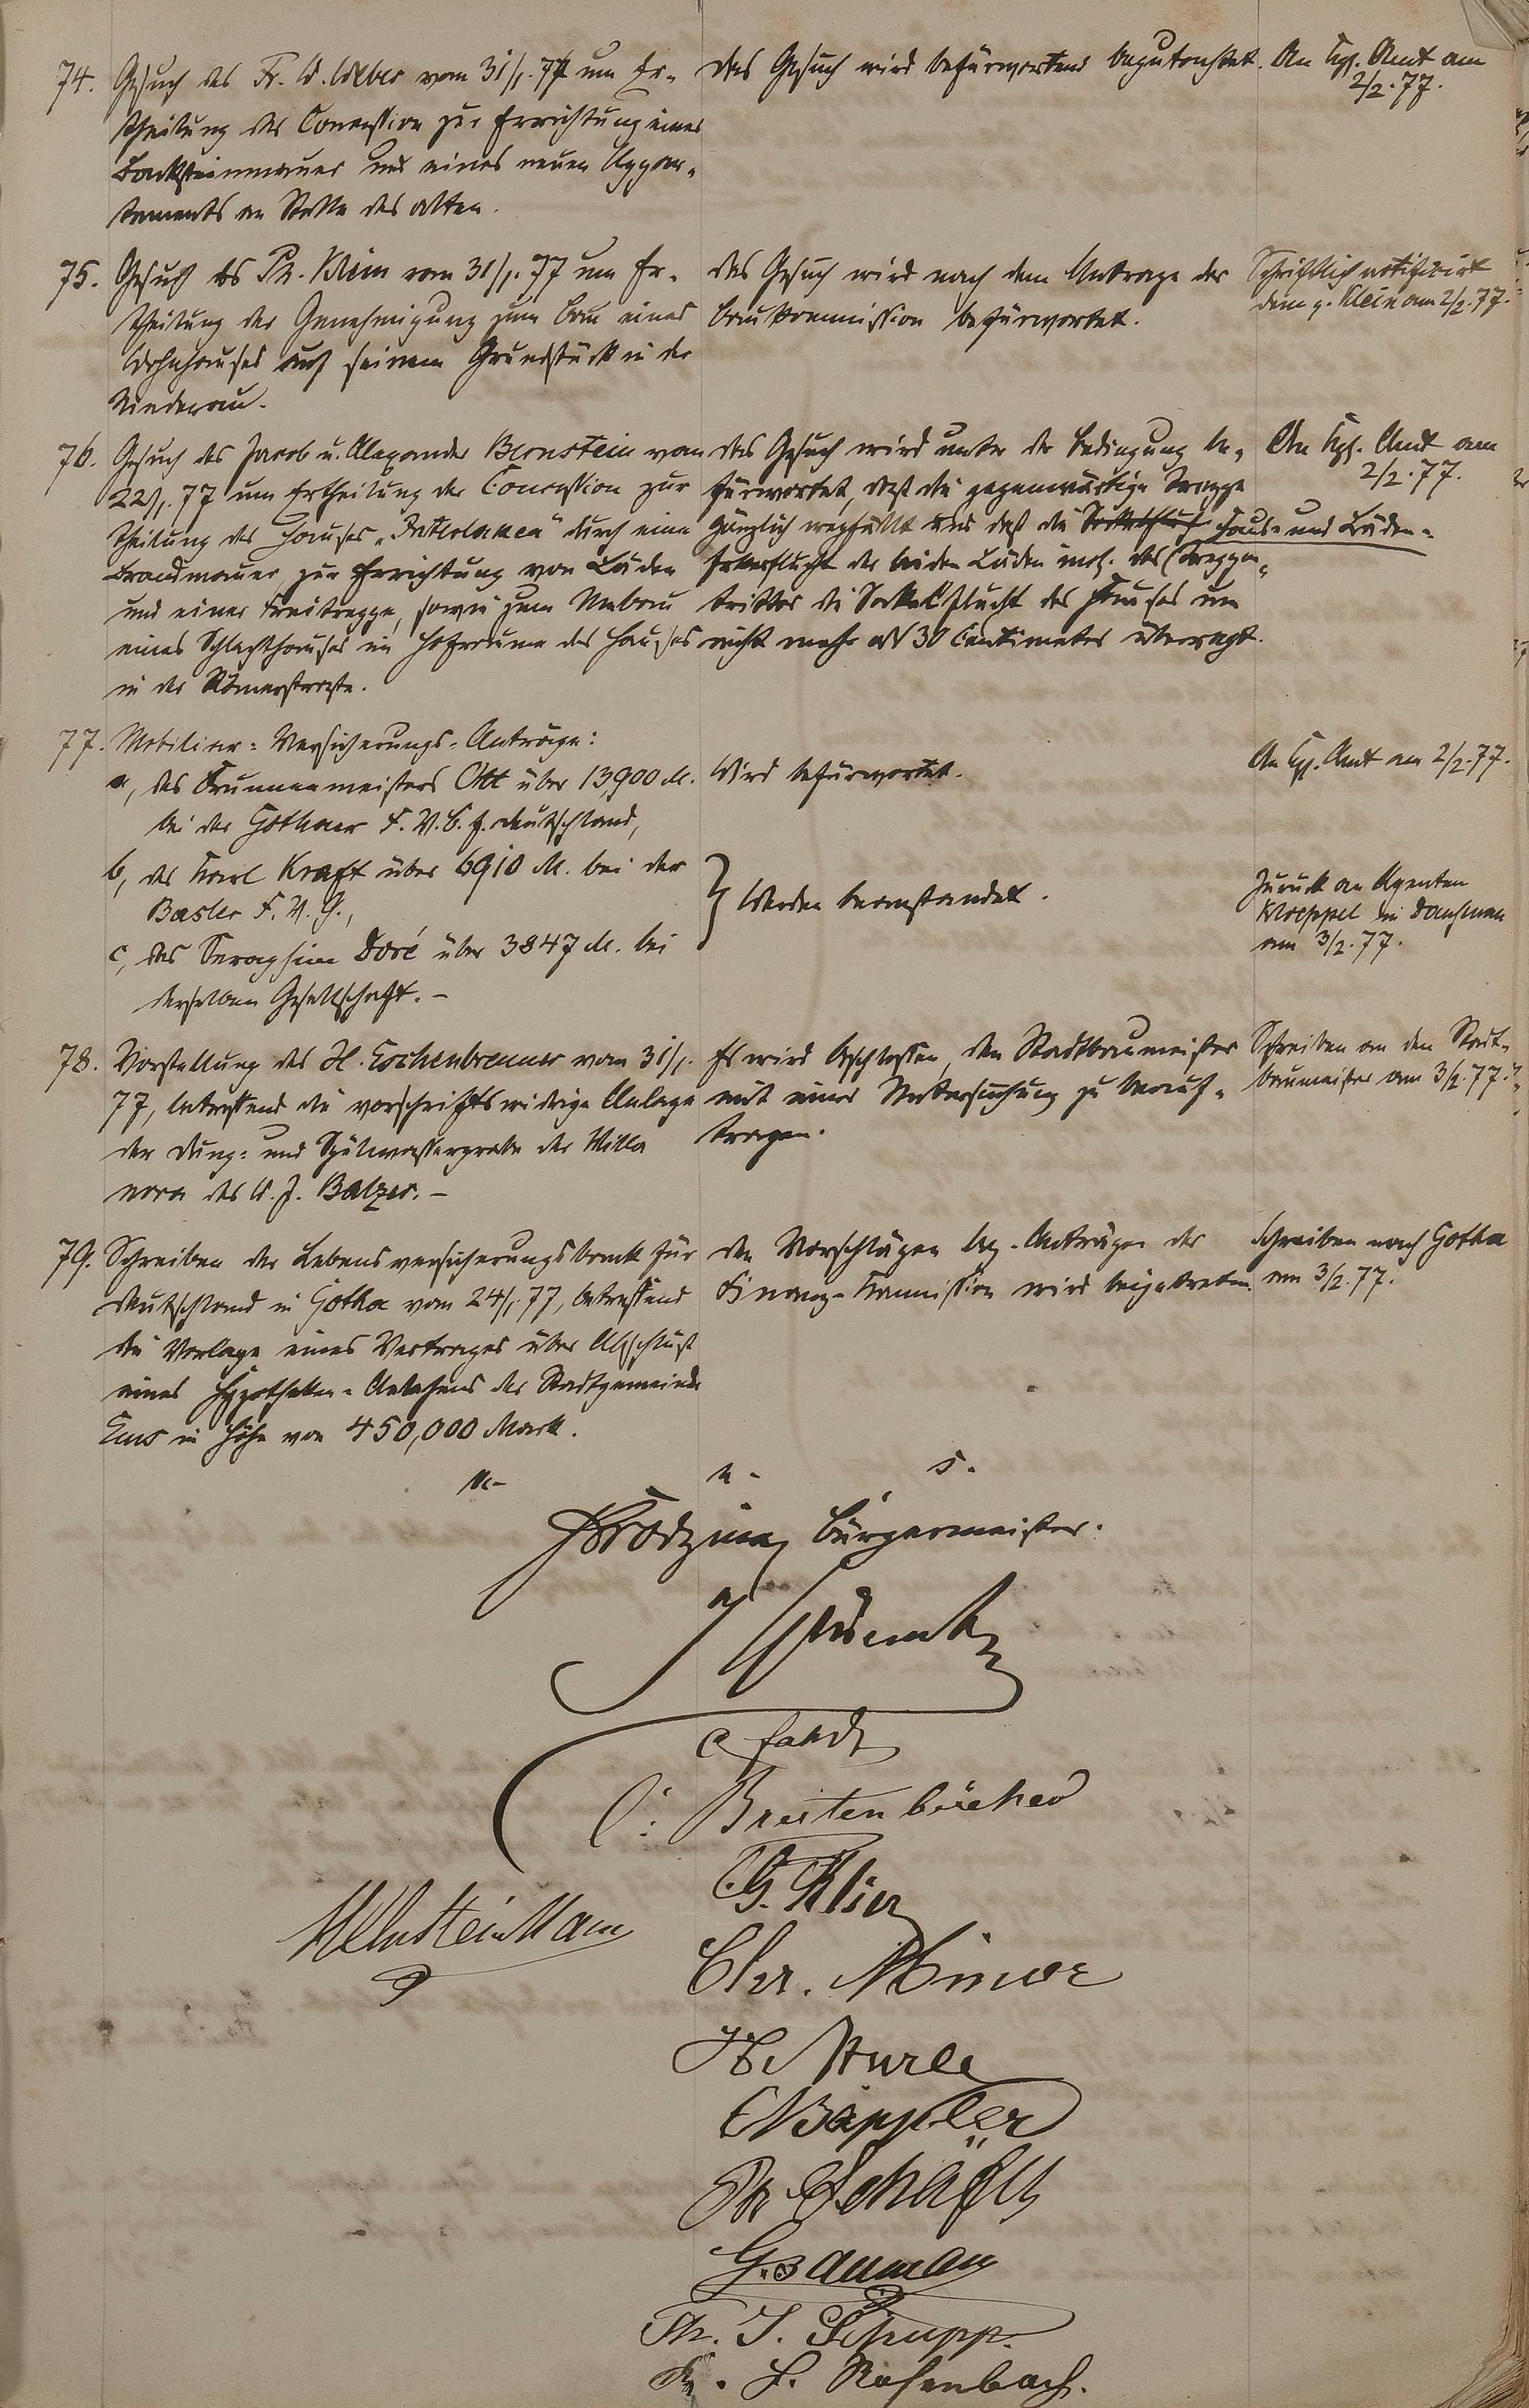 74. Gesuch des Fr. W. Weber vom 31/1. 77 um Er-
theilung der Concession zur Errichtung einer
Backsteinmauer und eines neuen Appar-
taments an Stelle des alten.
Das Gesuch wird befürwortend begutachtet.
An Kgl. Amt am
2/2. 77.
75. Gesuch des Ph. Klein vom 31/1. 77 um Er-
theilung der Genehmigung zum Bau eines
Wohnhauses auf seinem Grundstück in der
Das Gesuch wird nach dem Antrage der
Baukommission befürwortet.
Schriftlich notifizirt
dem p. Klein am 2/2. 77.
76. Gesuch des Jacob u. Alexander Bernstein vom
22/1. 77 um Ertheilung der Concession zur
Theilung des Hauses durch eine
Brandmauer, zur Errichtung von Läden
und einer Freitreppe, sowie zum Umbau
eines Schlachthauses im Hofraume des Hauses
in der Römerstraße.
Das Gesuch wird unter der Bedingung be-
fürwortet, daß die gegenwärtige Treppe
gänzlich wegfällt und daß die Haus- und Läden-
der beiden Läden incl. des Treppen-
trittes die Sockelflucht des Hauses um
nicht mehr als 30 Centimeter überragt.
An Kgl. Amt am
2/2. 77.
77. Mobiliar-Versicherungs-Anträge:
a, des Brunnenmeisters Ott über 13,900 M.
bei der Gothaer F. V. B. f. Deutschland,
b, des Karl Kraft über 6910 M. bei der
Basler F. V. G.,
c, des Seraphim Doré über 3847 M. bei
derselben Gesellschaft. –
Wird befürwortet.
Werden beanstandet.
An Kgl. Amt am 2/2. 77.
Zurück an Agenten
in Dausenau
am 3/2. 77.
78. Vorstellung des H. Eschenbrenner vom 31/1.
77, betreffend die vorschriftswidrige Anlage
der Dung- und Spülwassergrube der Villa
nova des W. J. Balzer. –
Es wird beschlossen, den Stadtbaumeister
mit einer Untersuchung zu beauf-
tragen.
Schreiben an den Stadt-
baumeister am 3/2. 77.
79. Schreiben der Lebensversicherungsbank für
Deutschland in Gotha vom 24/1. 77, betreffend
die Vorlage eines Vertrages über Abschluß
eines Hypotheken-Anlehens der Stadtgemeinde
Ems in Höhe von 450,000 Mark.
Den Vorschlägen bez. Anträgen der
Finanz-Kommission wird beigetreten.
Schreiben nach Gotha
am 3/2. 77.
u. s.
Bürgermeister.
C: Breitenbücher
Chr. Minor
Ph. Schäfer
G. Bauman
Ph. J. Schupp.
Rosenbach.